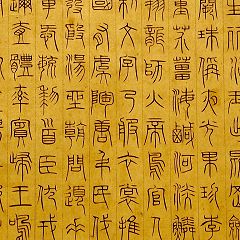 闕珠稱夜光果珍李
重芥薑海鹹河淡鱗
翔龍師火帝鳥官人
制文字乃服衣裳推
國有虞陶唐弔民伐
發殷湯坐朝問道垂
章愛育黎首臣伏戎
邇壹體率賓歸王鳴